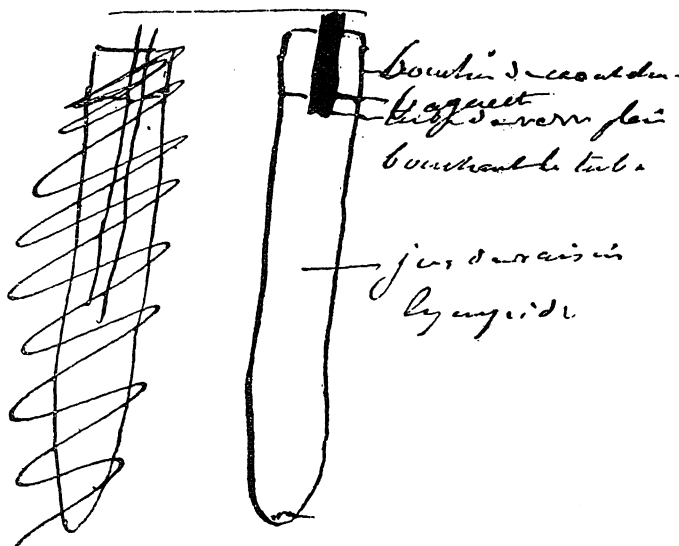 bouchon de caoutchouc
baguet
tube de verre plein
bouchant le tube
jus de raisin
lympide